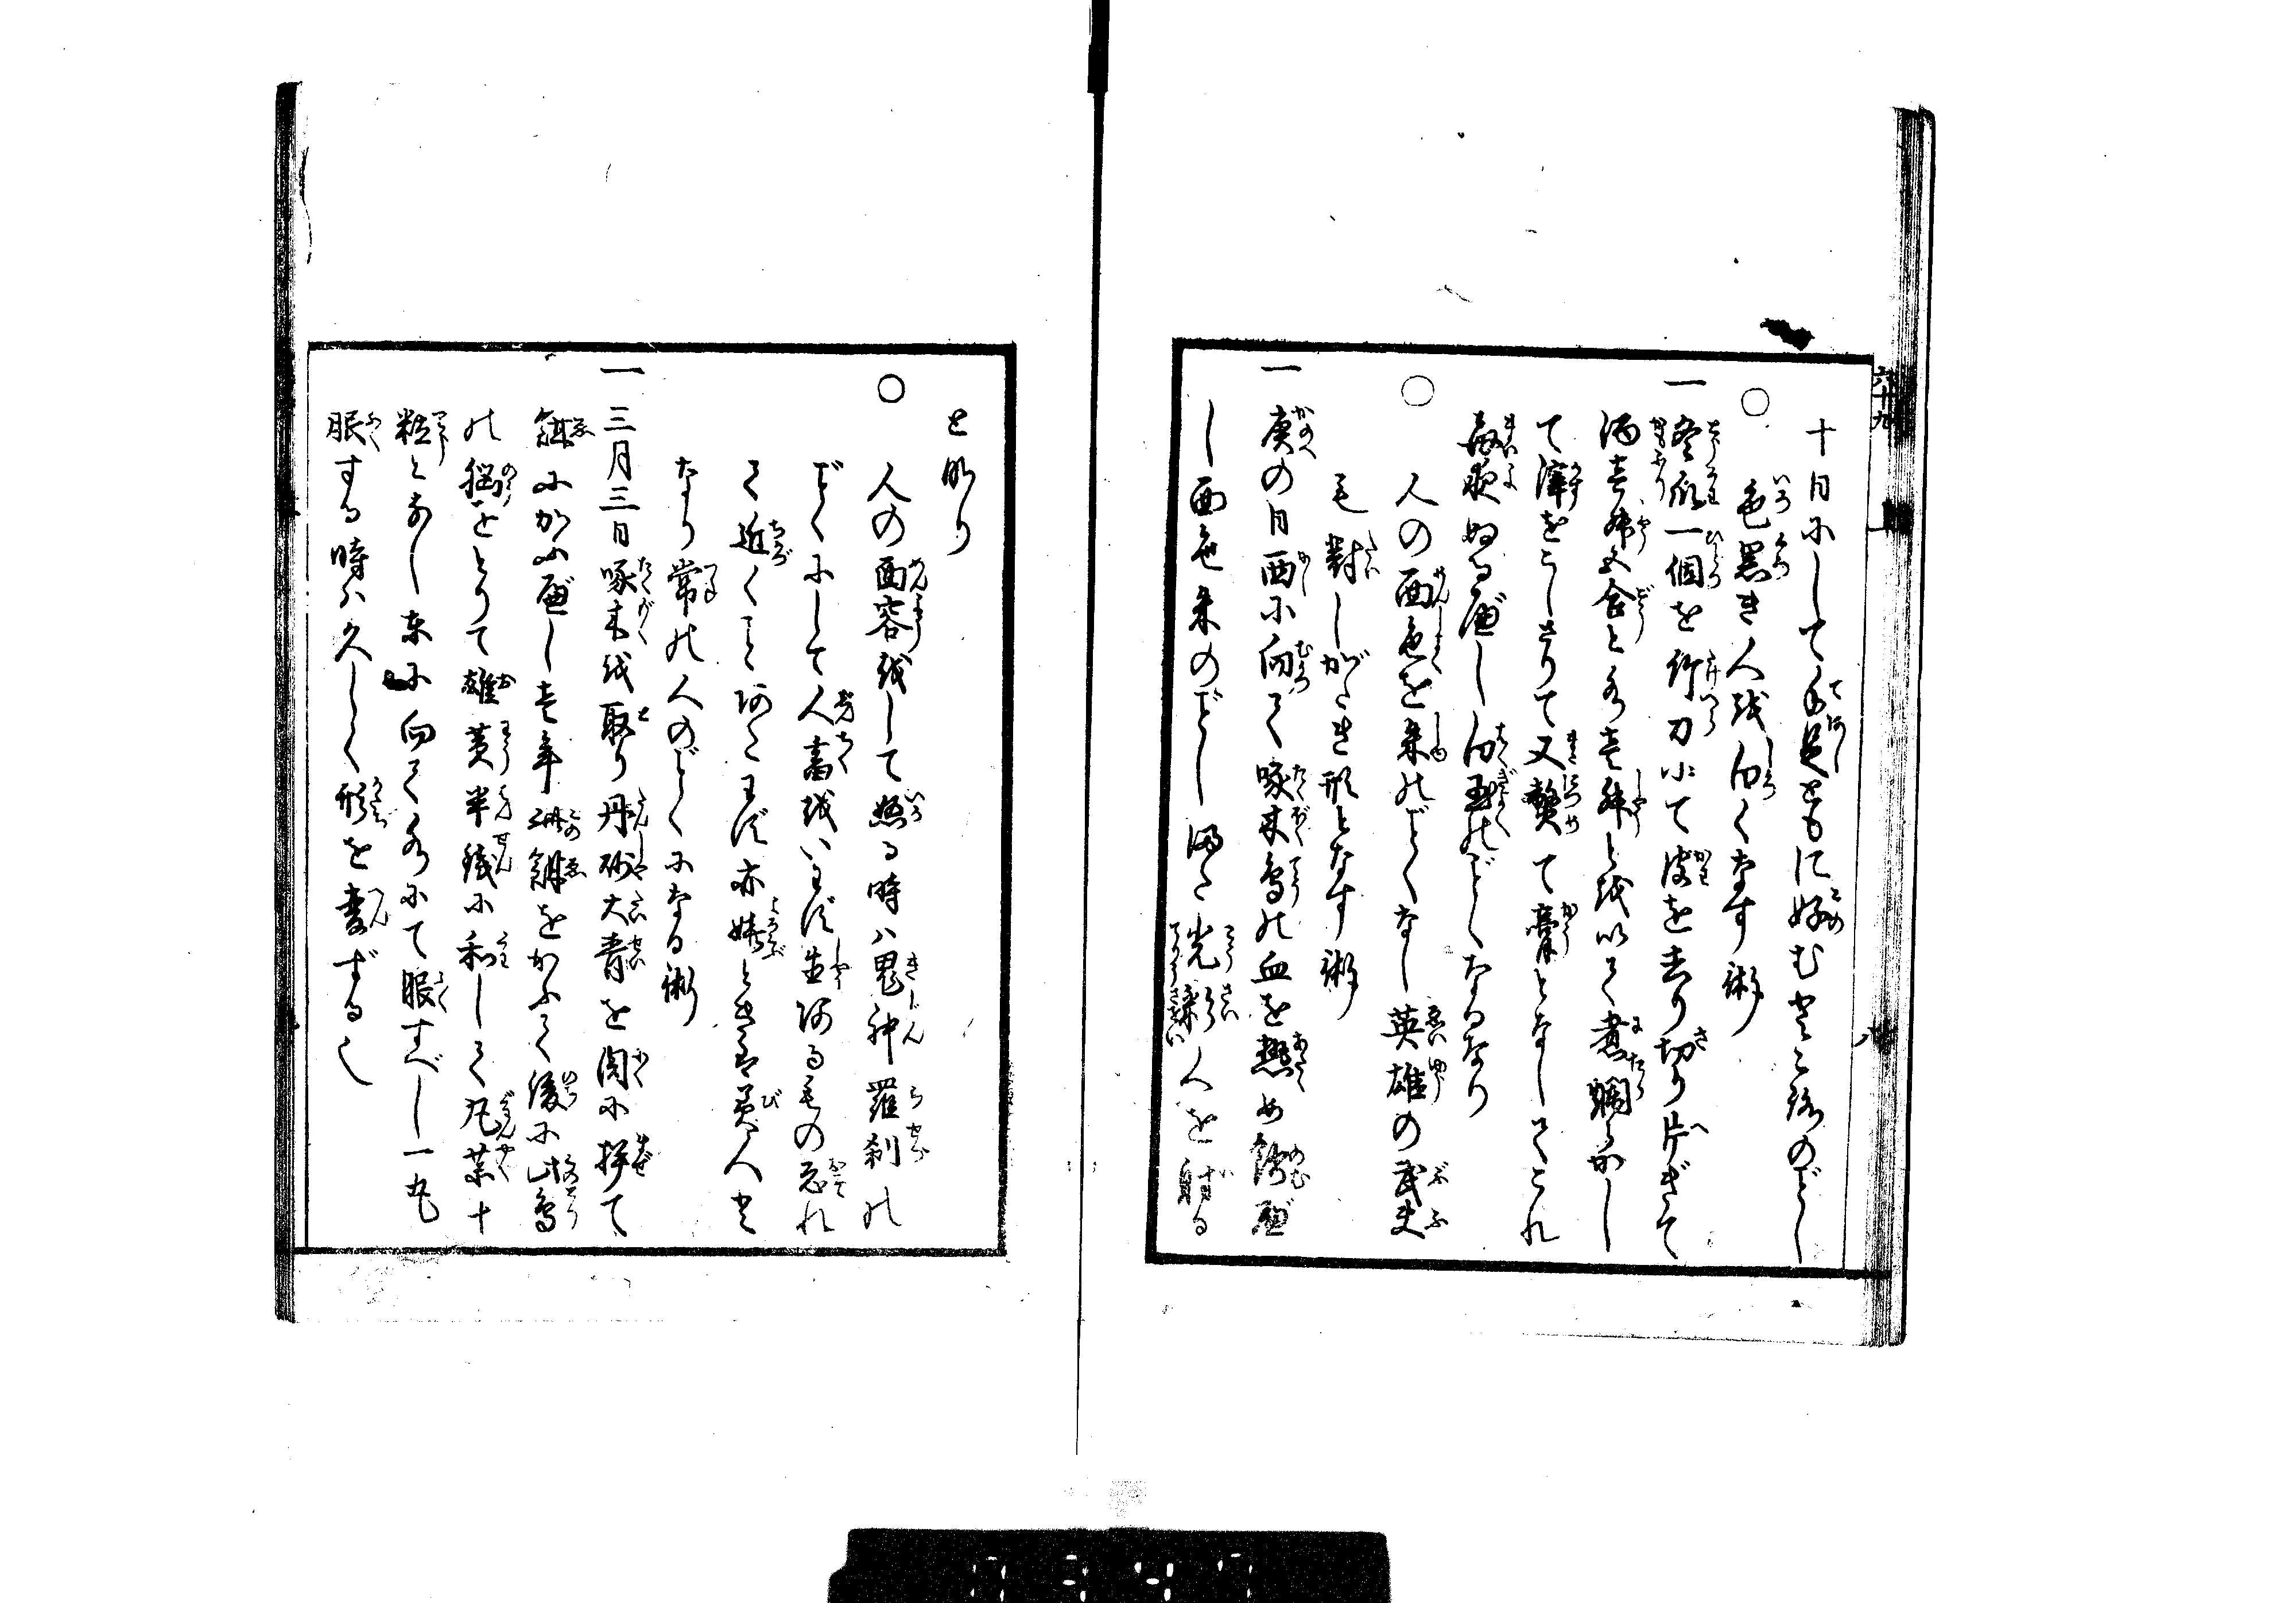 十日にして手足ともに好む色と成のごとし
○色黒き人を白くなす術
一冬瓜一個を竹刀にて皮を去り切り片ぎて
酒壱升五合と水壱升とを以て煮爛らかし
て滓をこしさりて又熬て膏となしてこれ
毎夜ぬるべし白玉のごとくなるなり
○人の面色を朱のごとくなし英雄の武夫
も対しがたき形となす術
一庚の日西に向て啄木鳥の血を熱め飲べ
し面色朱のごとし 光彩人を射る
と成り
○人の面容をして怒る時ハ鬼神羅刹の
ごとくにして人畜をいはず生あるもの恐れ
て近づくことあたはず亦 美人も
なり常の人のごとくになる術
一三月三日啄木を取り丹砂大青を肉に拌て
餌にかふべし壱年 餌をかふて後に此鳥
の脳をとりて雄黄半銭に和して丸薬十
粒となし東に向て水にて服すべし一丸
服する時ハ久しく形を変ずるし
六十九